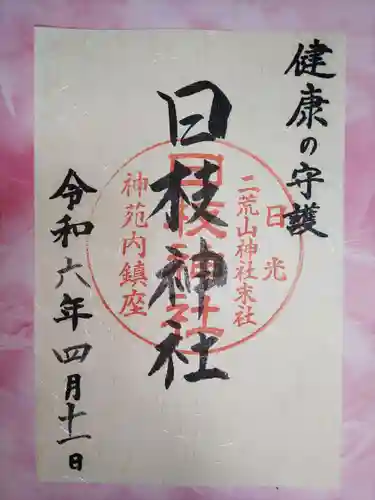 健康の守護
日枝神社
令和六年四月十一日
日光
二荒山神社末社
日枝神社
神苑内鎮座